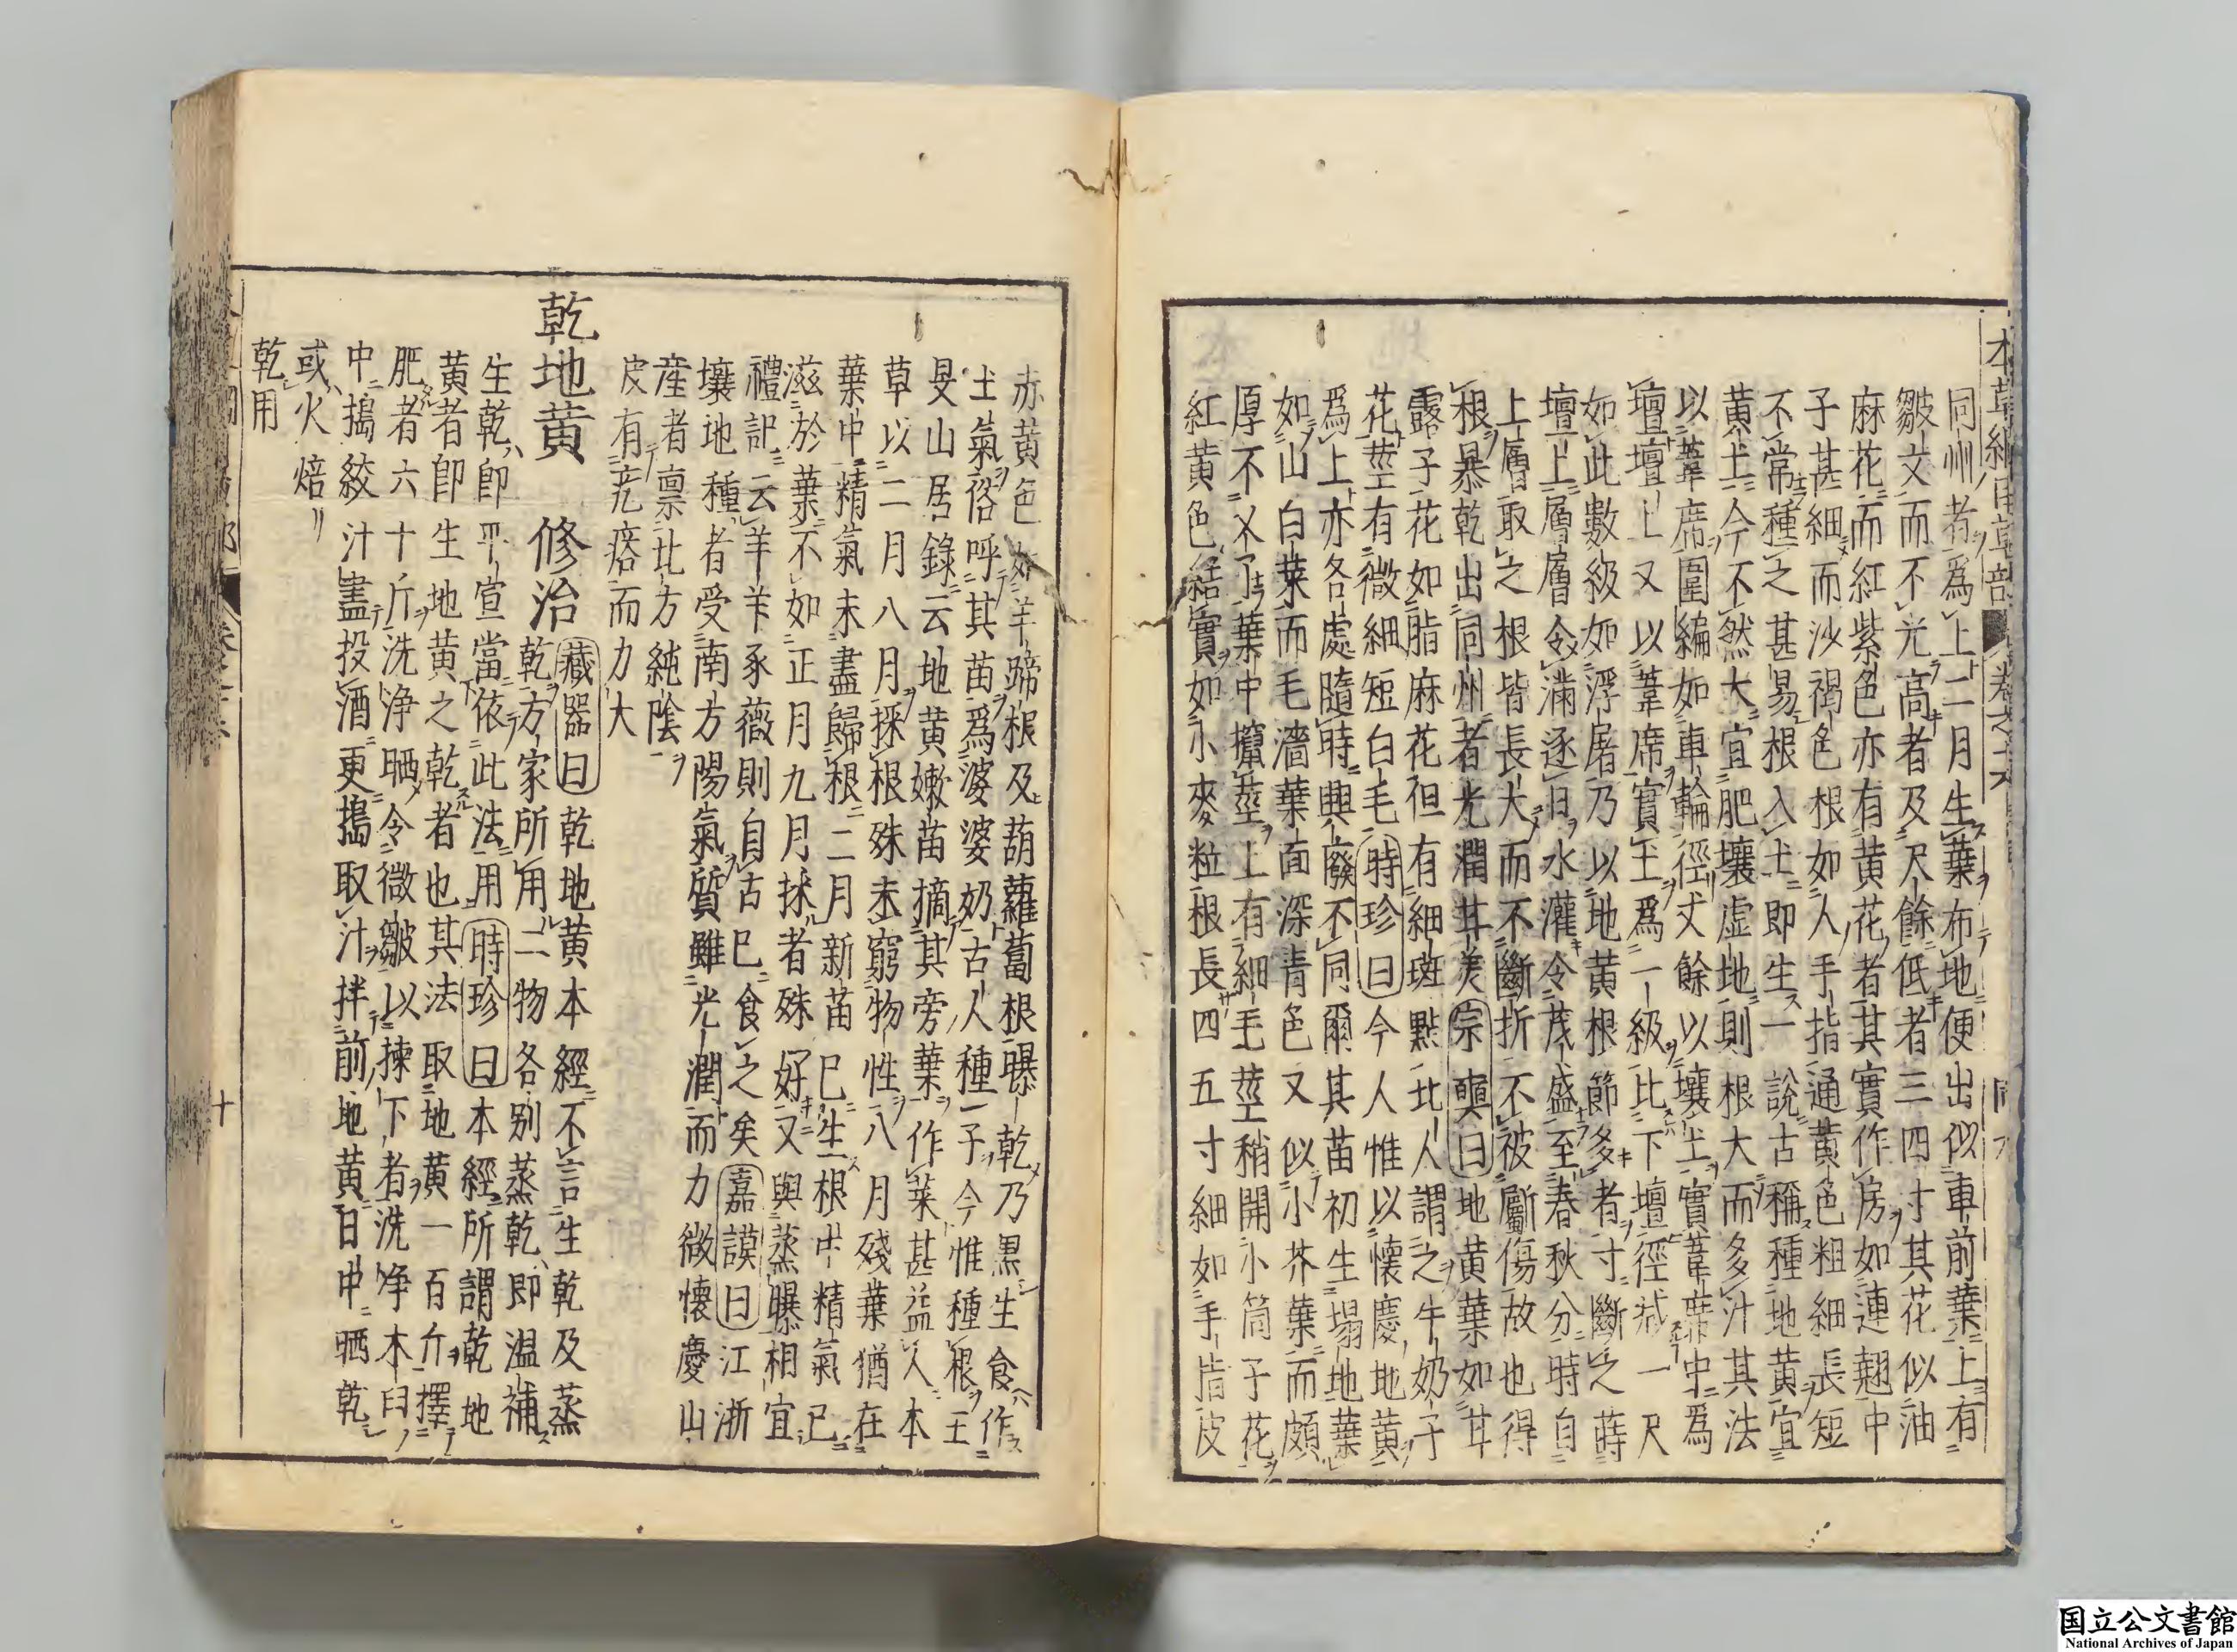 本草綱目草部 卷之十六
同州者爲上二月生葉布地便出似車前葉上有
皺文而不光高者及尺餘低者三四寸其花似油
麻花而紅紫色亦有黄花者其實作房如連翹中
子甚細而沙褐色根如人手指通黄色粗細長短
不常種之甚易根入土即生一說古稱種地黄宜
黄土今不然大宜肥壤虚地則根大而多汁其法
以葦席圍編如車輪徑丈餘以壤土實葦席中爲
壇壇上又以葦席實土爲一級比下壇徑減一尺
如此數級如浮屠乃以地黄根節多者寸斷之蒔
壇上層層令滿逐日水灌令茂盛至春秋分時自
上層取之根皆長大而不斷折不被斸傷故也得
根暴乾出同州者光潤甘美宗奭曰地黄葉如甘
露子花如脂麻花但有細斑點北人謂之牛奶子
花莖有微細短白毛時珍曰今人惟以懷慶地黄
爲上亦各處隨時興廢不同爾其苗初生塌地葉
如山白菜而毛濇葉面深青色又似小芥葉而頗
厚不叉丫葉中攛莖上有細毛莖稍開小筒子花
紅黄色結實如小麥粒根長四五寸細如手指皮
赤黄色如羊蹄根及葫蘿蔔根曝乾乃黒生食作
土氣俗呼其苗爲婆婆奶古人種子今惟種根王
旻山居錄云地黄嫩苗摘其旁葉作菜甚益人本
草以二月八月採根殊未窮物性八月殘葉猶在
葉中精氣未盡歸根二月新苗已生根中精氣已
滋於葉不如正月九月採者殊好又與蒸曝相宜
禮記云羊苄豕薇則自古已食之矣嘉謨曰江浙
壤地種者受南方陽氣質雖光潤而力微懷慶山
産者禀北方純陰
皮有疙瘩而力大
乾地黄 修治 藏器曰乾地黄本經不言生乾及蒸
乾方家所用二物各别蒸乾即温補
生乾即平宣當依此法用時珍曰本經所謂乾地
黄者即生地黄之乾者也其法取地黄一百斤擇
肥者六十斤洗浄晒令微皺以揀下者洗浄木臼
中搗絞汁盡投酒更搗取汁拌前地黄日中晒乾
或火焙
乾用
十
国立公文書館
National Archives of Japan